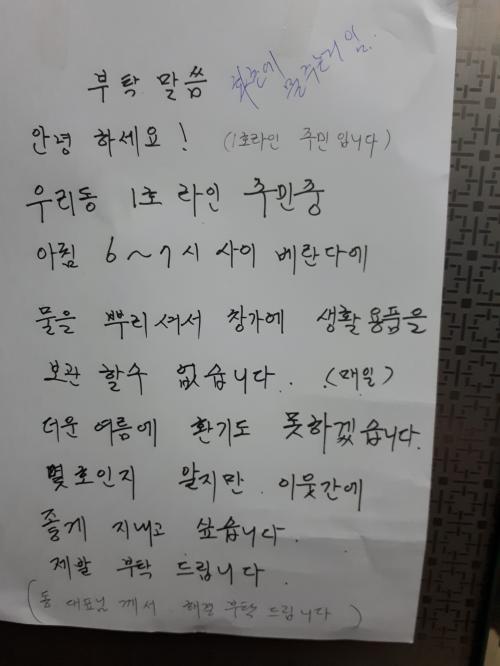 부탁 말씀 화분에 물주는거 임.
안녕 하세요! (1호라인 주민 입니다)
우리동 1호 라인 주민중
아침 6~7시 사이 베란다에
물을 뿌리셔서 창가에 생활용품을
보관 할수 없습니다. (매일)
더운 여름에 환기도 못하겠습니다.
몇호인지 알지만 이웃간에
좋게 지내고 싶습니다.
제발 부탁 드립니다.
(동 대표님 께서 해결 부탁 드립니다)